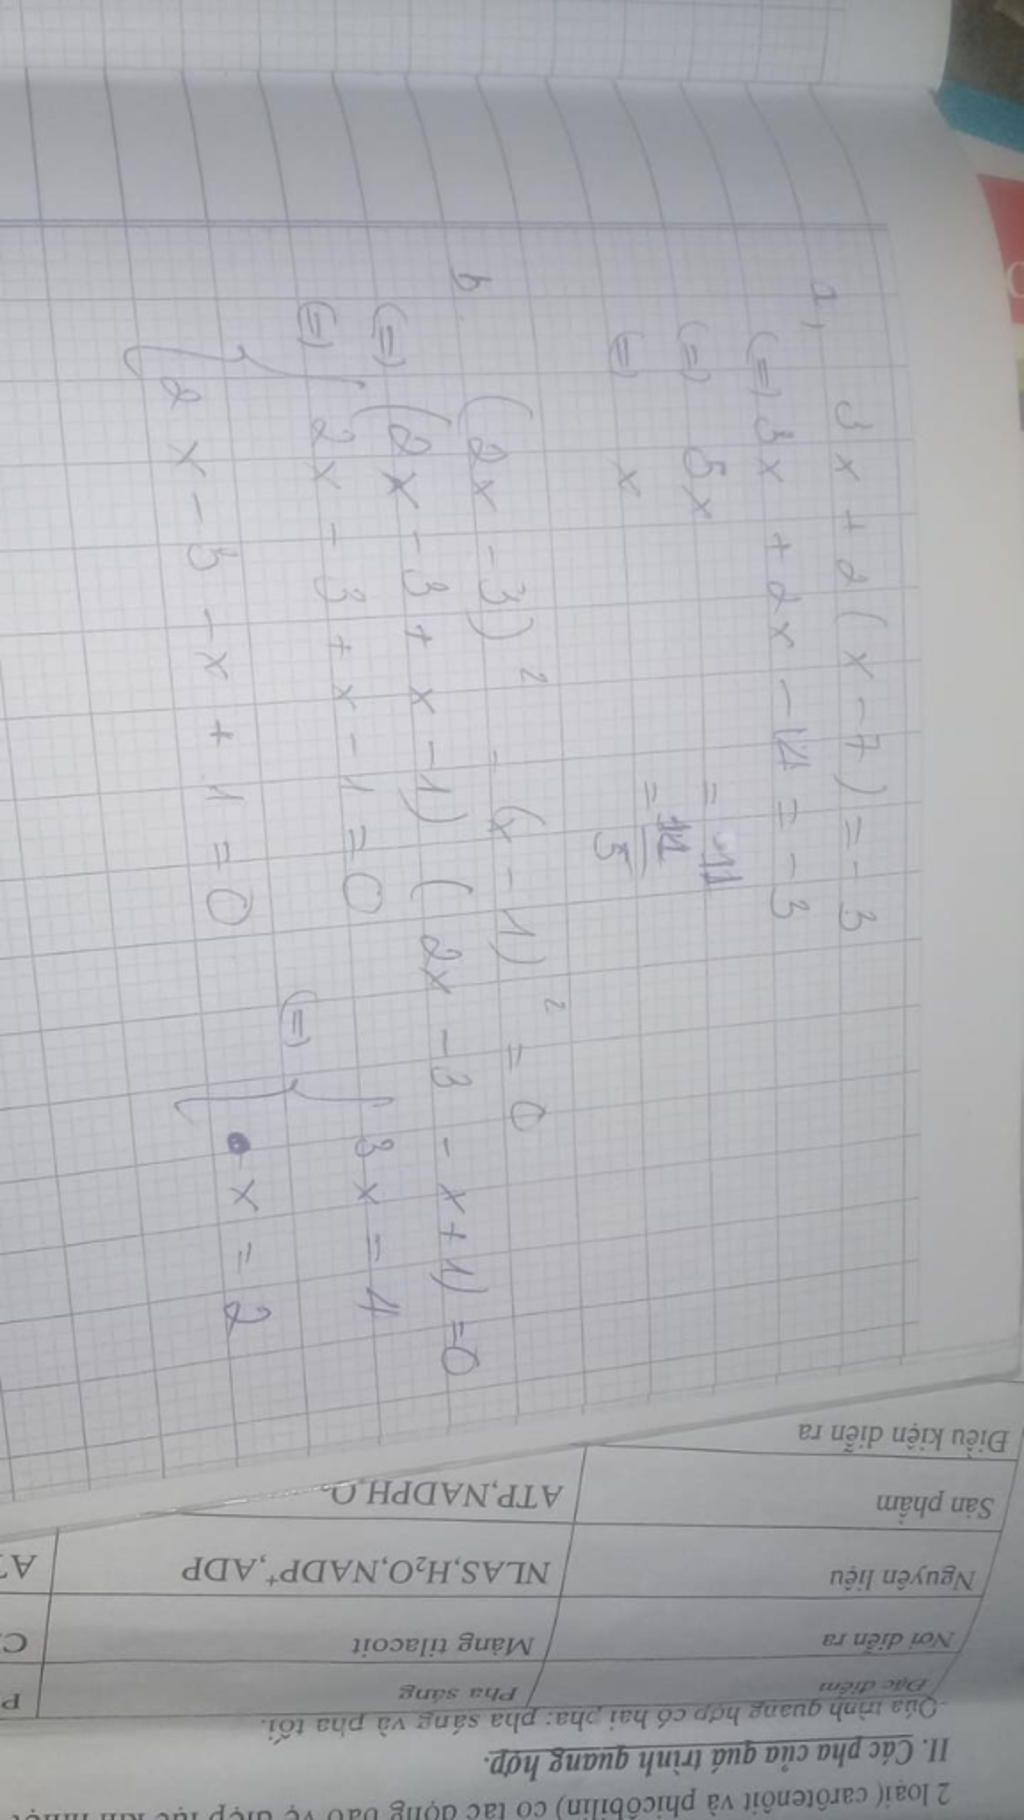 a, 3x + 2(x - 7) = -3
(=) 3x + 2x - 14 = -3
(=) 5x = 11
(=) x = 11/5
b (2x - 3)² - (x - 1)² = 0
(=) (2x - 3 + x - 1) (2x - 3 - x + 1) = 0
(=) { 2x - 3 + x - 1 = 0 (=) { 3x = 4
2x - 3 - x + 1 = 0 x = 2
2 loại( carôtenôit và phicôbilin) có tác động bảo vệ diệp lục khi
II. Các pha của quá trình quang hợp.
-Qúa trình quang hợp có hai pha: pha sáng và pha tối.
Đặc điểm Pha sáng P
Nơi diễn ra Màng tilacoit C
Nguyên liệu NLAS,H₂O,NADP⁺,ADP A
Sản phẩm ATP,NADPH,O₂
Điều kiện diễn ra